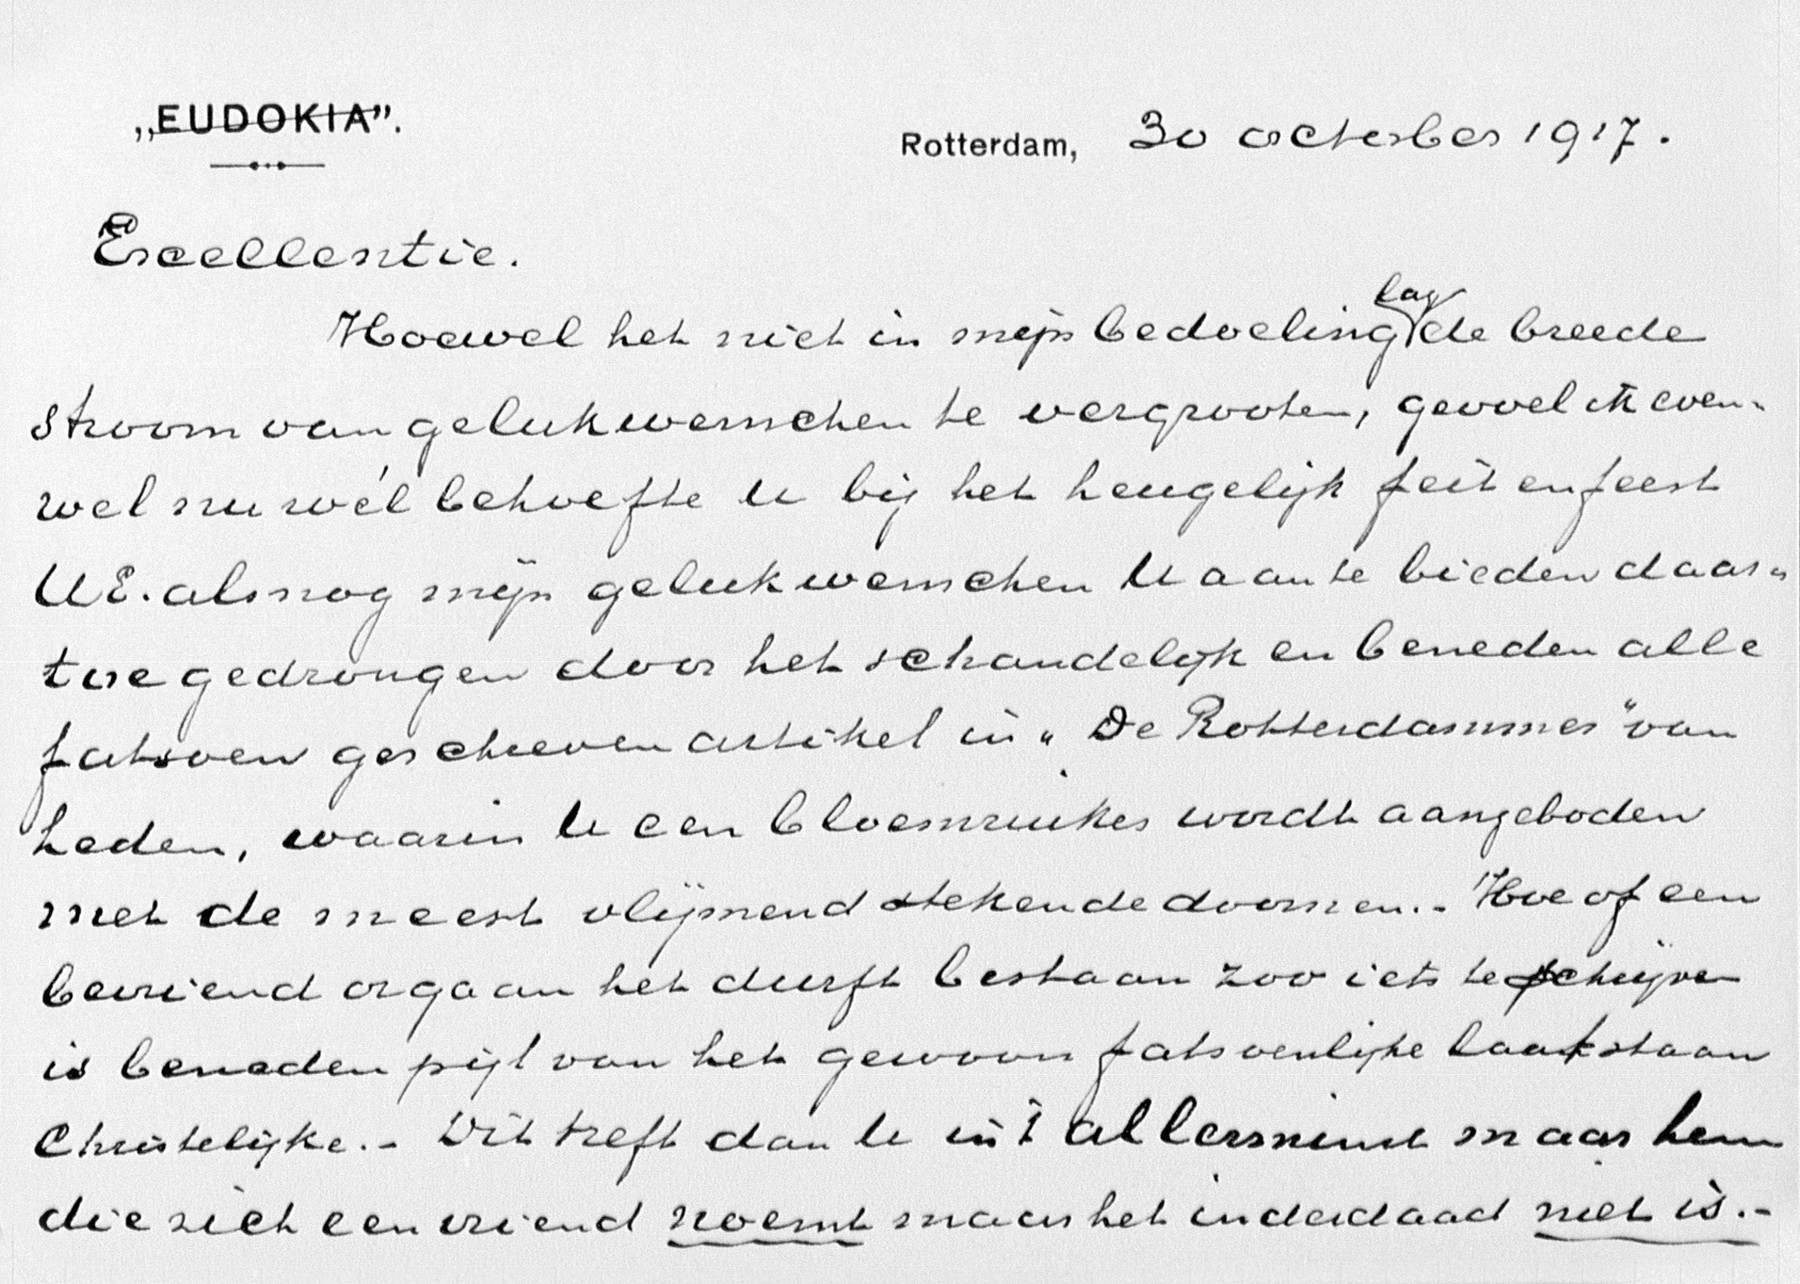 „EUDOKIA”.
Rotterdam, 30 october 1917.
Excellentie.
Hoewel het niet in mijn bedoeling lag de breede
stroom van gelukwenschen te vergrooten, gevoel ik even-
wel nu wél behoefte U bij het heugelijk feit en feest
UE. alsnog mijn gelukwenschen U aan te bieden daar-
toe gedrongen door het schandelijk en beneden alle
fatsoen geschreven artikel in „De Rotterdammer” van
heden, waarin U een bloemruiker wordt aangeboden
met de meest vlijmend stekende doornen.- Hoe of een
bevriend orgaan het durft bestaan zoo iets te schrijven
is beneden pijl van het gewoon fatsoenlijke laat staan
Christelijke.- Dit treft dan U in 't allerminst maar hem
die zich een vriend noemt maar het inderdaad niet is.-